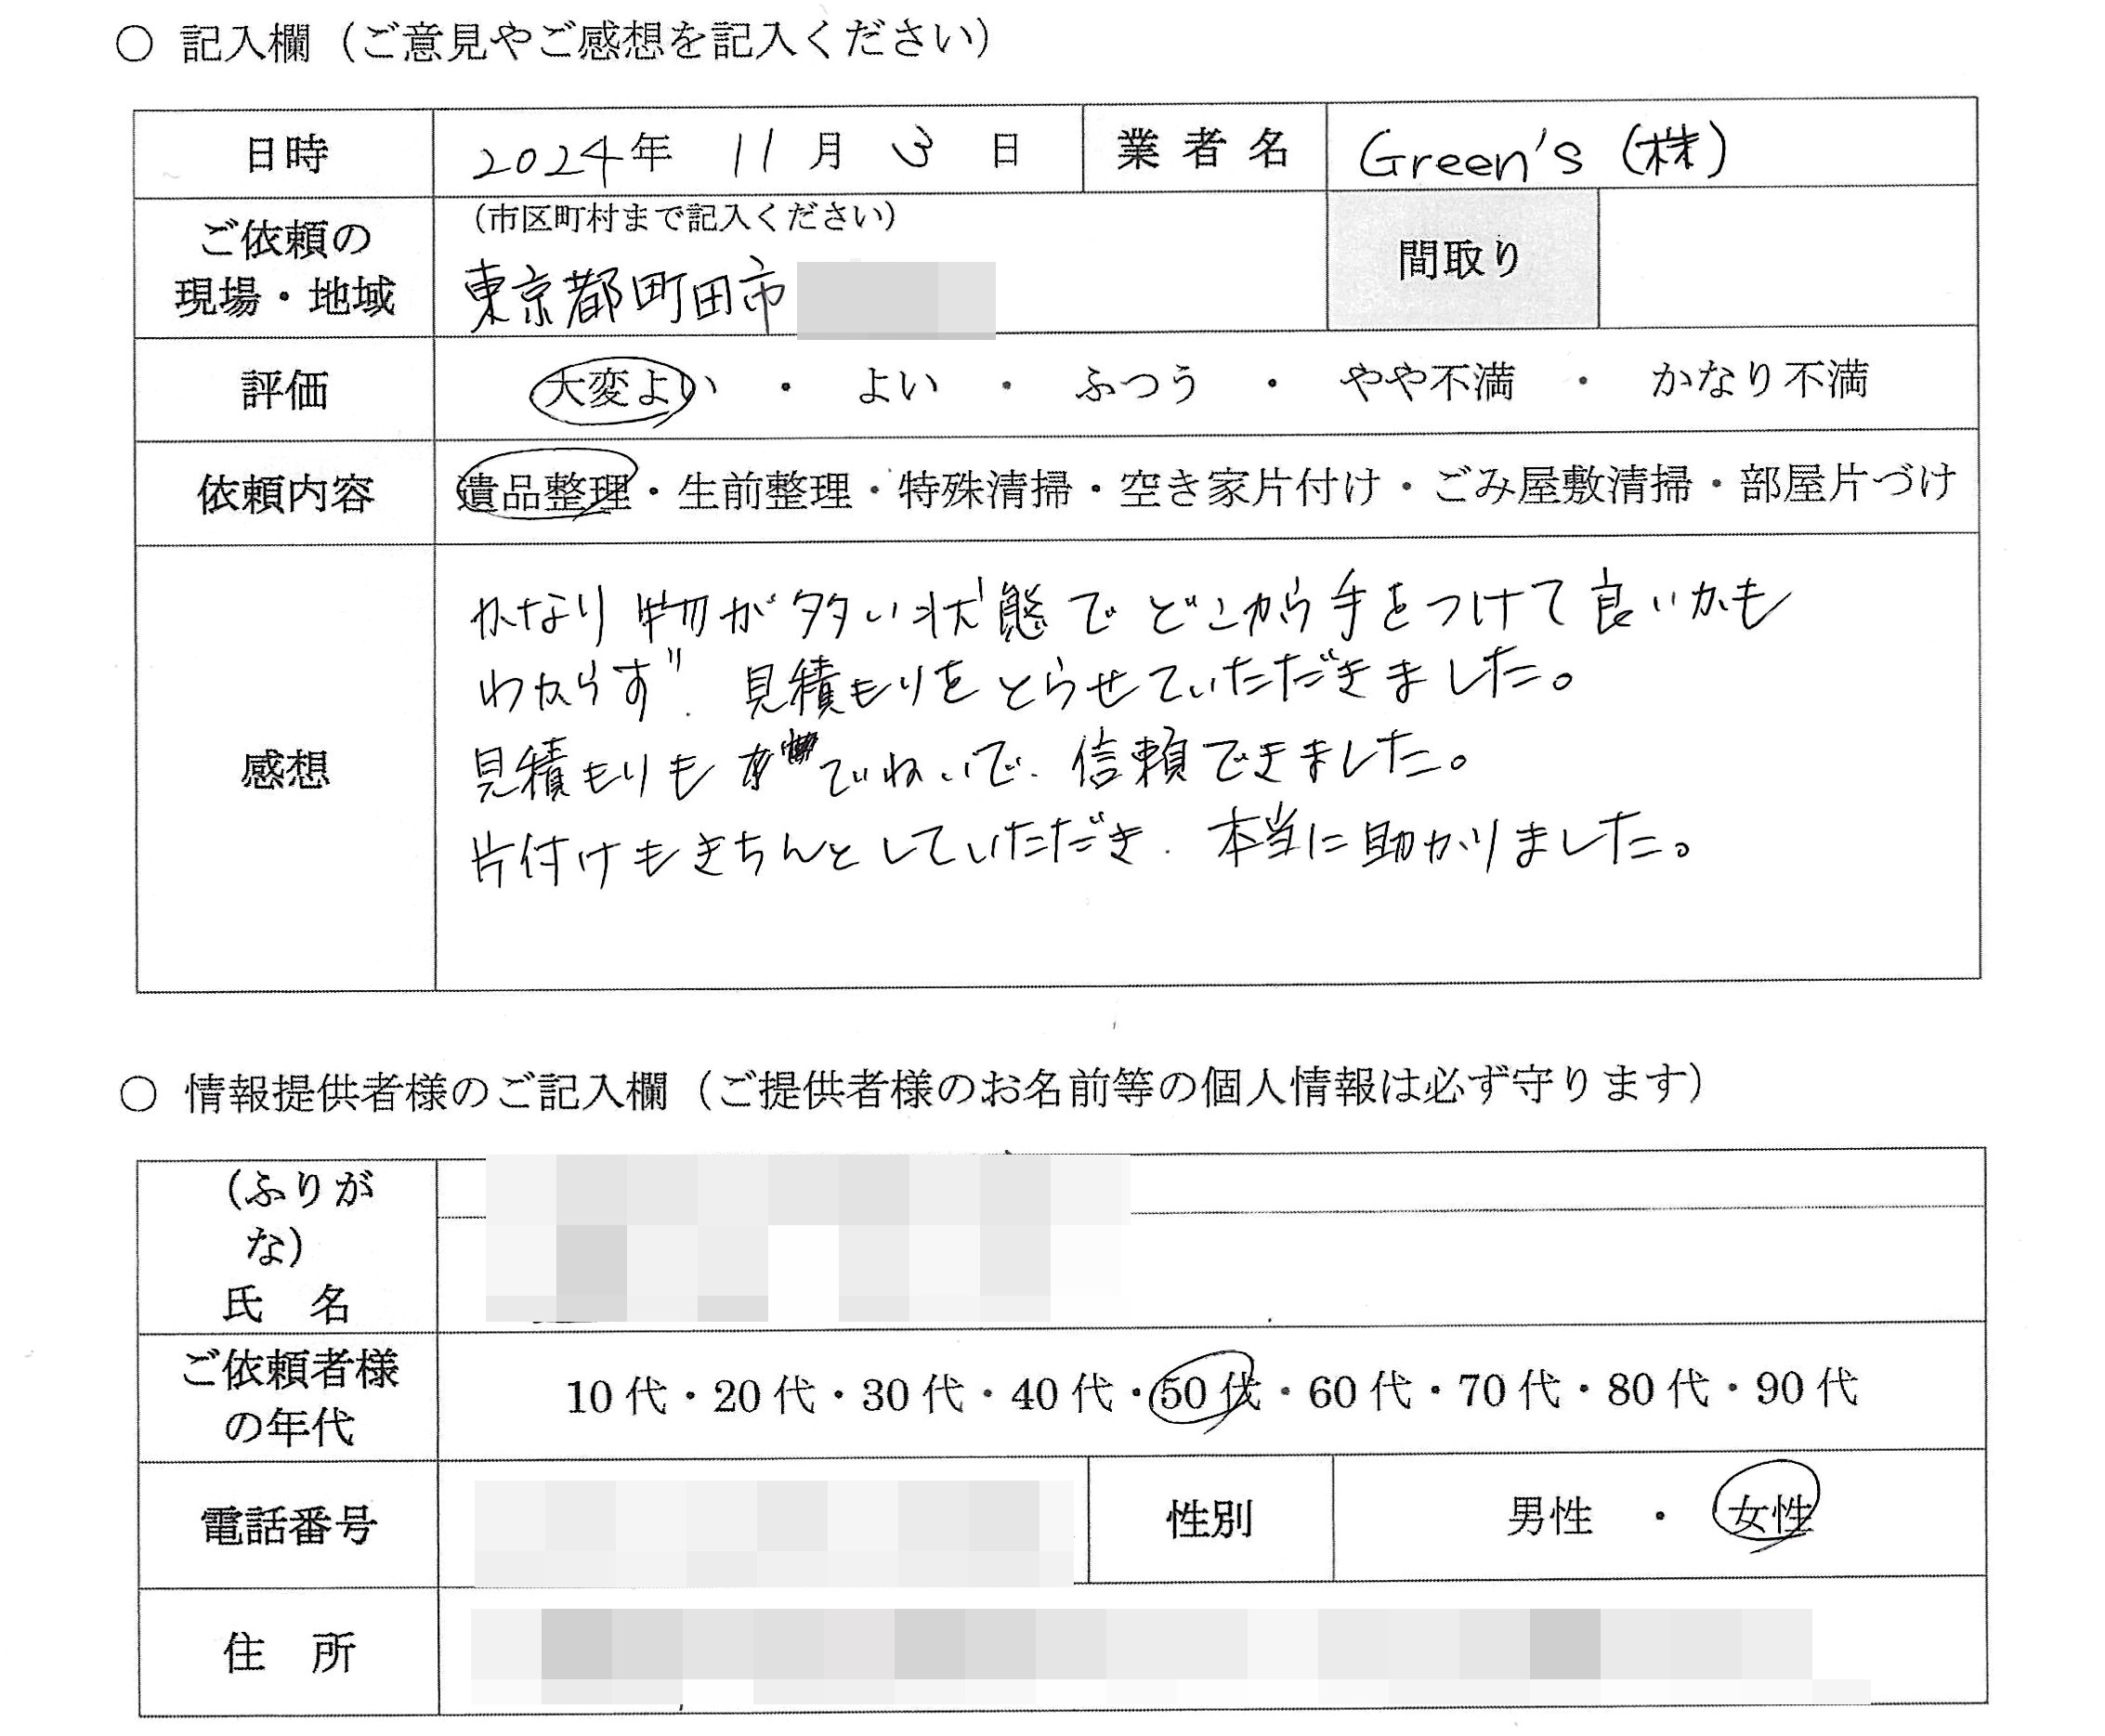 ○ 記入欄（ご意見やご感想を記入ください）
日時 2024年 11月 3日 業者名 Green's (株)
ご依頼の
現場・地域
（市区町村まで記入ください）
東京都町田市
間取り
評価 大変よい ・ よい ・ ふつう ・ やや不満 ・ かなり不満
依頼内容 遺品整理・生前整理・特殊清掃・空き家片付け・ごみ屋敷清掃・部屋片づけ
感想
かなり物が多い状態でどこから手をつけて良いかも
わからず、見積もりをとらせていただきました。
見積もりもていねいで、信頼できました。
片付けもきちんとしていただき、本当に助かりました。
○ 情報提供者様のご記入欄（ご提供者様のお名前等の個人情報は必ず守ります）
（ふりが
な）
氏 名
ご依頼者様
の年代
10代・20代・30代・40代・50代・60代・70代・80代・90代
電話番号 性別 男性 ・ 女性
住 所